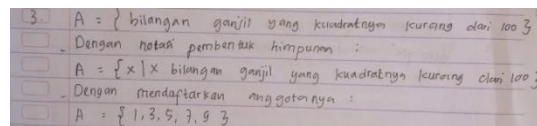 3. A = { bilangan ganjil yang kuadratnya kurang dari 100 }
- Dengan notasi pembentuk himpunan :
A = { x | x bilangan ganjil yang kuadratnya kurang dari 100 }
- Dengan mendaftarkan anggotanya :
A = { 1, 3, 5, 7, 9 }